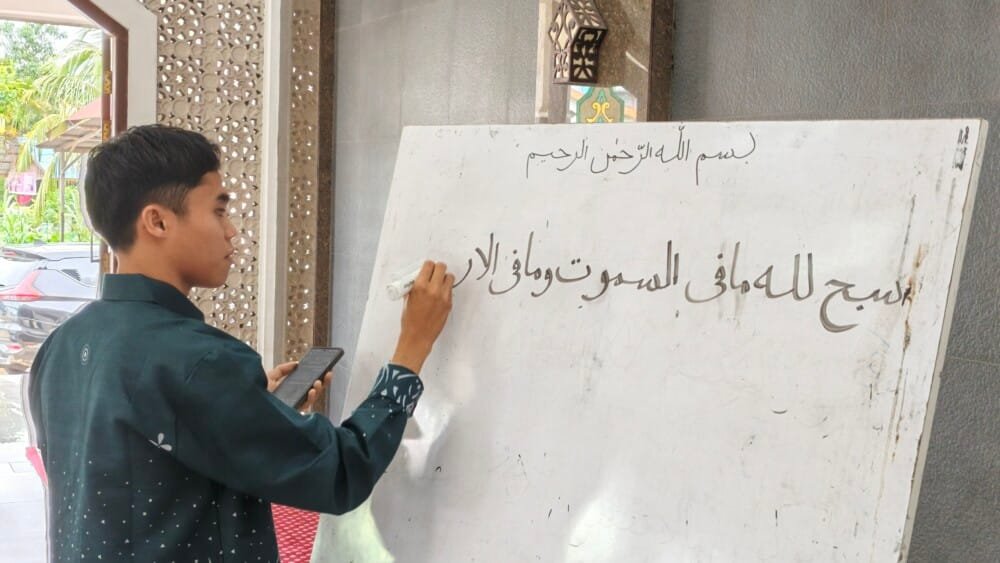 بسم الله الرّحمٰن الرحيم
سبح لله ما فى السموت وما فى الار